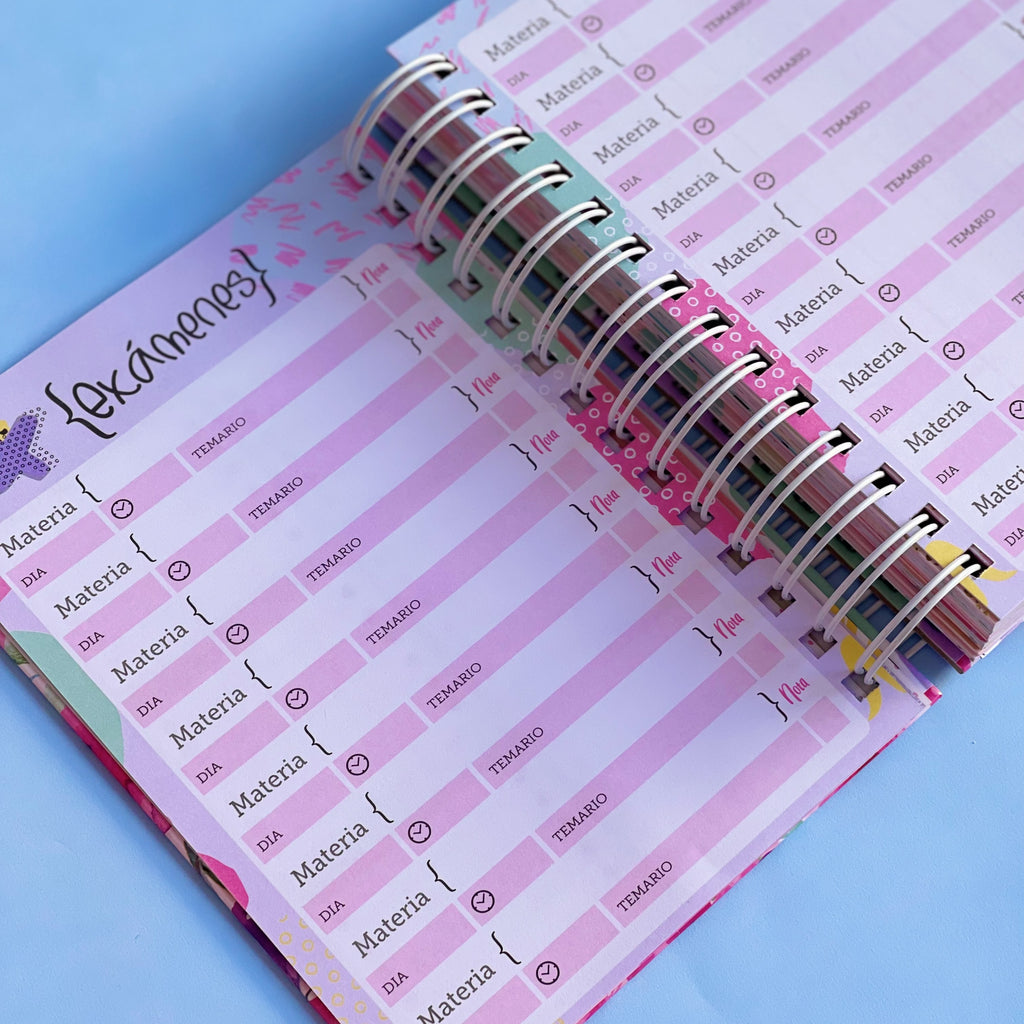 {exámenes}
Materia { } Nota
DIA TEMARIO
Materia { } Nota
DIA TEMARIO
Materia { } Nota
DIA TEMARIO
Materia { } Nota
DIA TEMARIO
Materia { } Nota
DIA TEMARIO
Materia { } Nota
DIA TEMARIO
Materia { } Nota
DIA TEMARIO
Materia { } Nota
TEMARIO
Materia {
DIA TEMARIO
Materia {
DIA TEMARIO
Materia {
DIA TEMARIO
Materia {
DIA TEMARIO
Materia {
DIA TEMARIO
Materia {
DIA
Materia {
DIA
Materia {
DIA
Materia
DIA